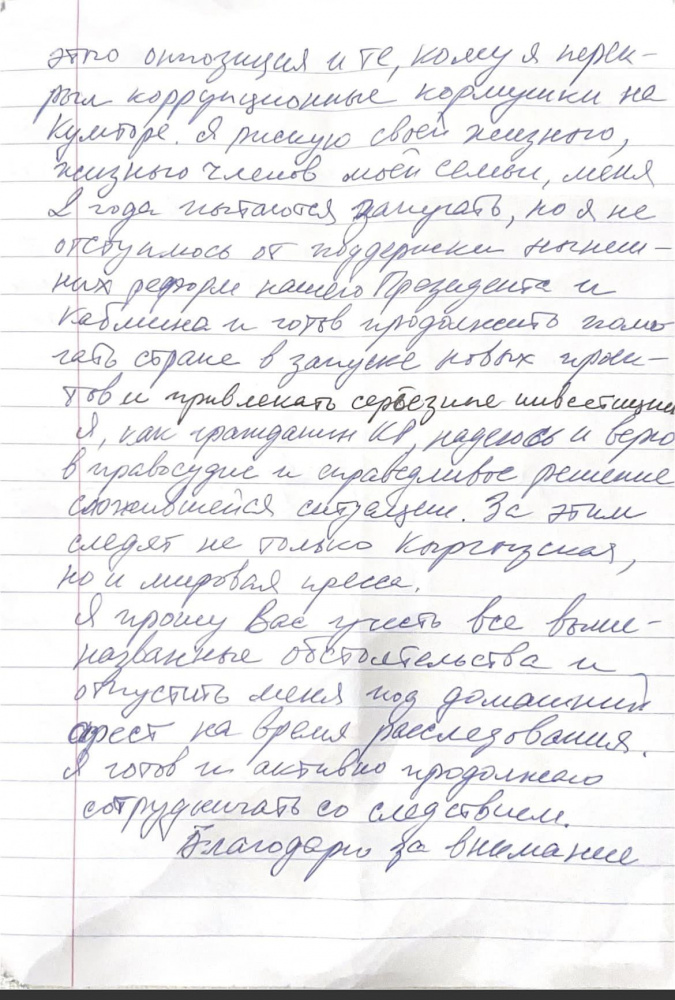 это оппозиция и те, кому я перек-
рыл коррупционные кормушки на
Кумторе. Я рискую своей жизнью,
жизнью членов моей семьи, меня
2 года пытаются запугать, но я не
отступлюсь от поддержки нынеш-
них реформ нашего Президента и
Кабмина и готов продолжить помо
гать стране в запуске новых проек-
тов и привлекать серьезные инвестиции
Я, как гражданин КР, надеюсь и верю
в правосудие и справедливое решение
сложившейся ситуации. За этим
следят не только Кыргызская,
но и мировая пресса.
Я прошу Вас учесть все выше-
названные обстоятельства и
отпустить меня под домашний
арест на время расследования.
Я готов и активно продолжаю
сотрудничать со следствием.
Благодарю за внимание